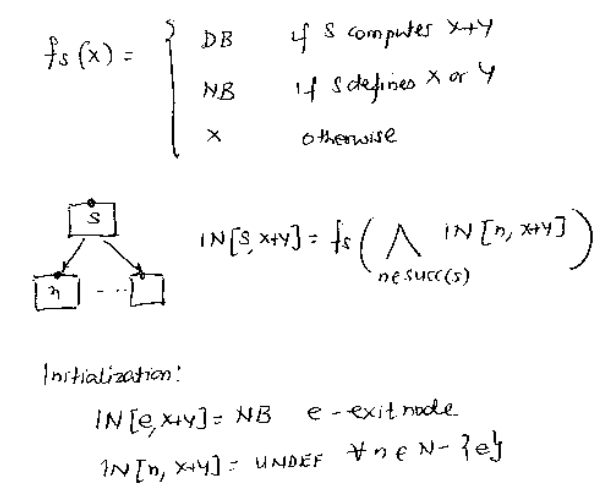 fs(x) = { DB if S computes x+y
NB if S defines x or y
x otherwise
S
IN[S, x+y] = fs( ∧ IN[n, x+y] )
n∈succ(s)
n - ..
Initialization:
IN[e, x+y] = NB e - exit node
IN[n, x+y] = UNDEF ∀ n ∈ N - {e}